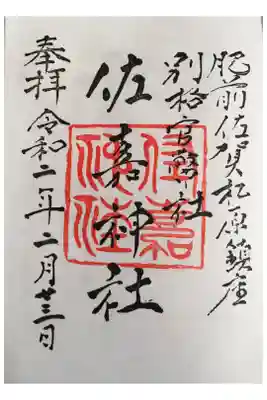 肥前佐賀松原鎮座
別格官幣社
佐嘉神社
佐嘉神社
奉拝 令和二年二月廿三日